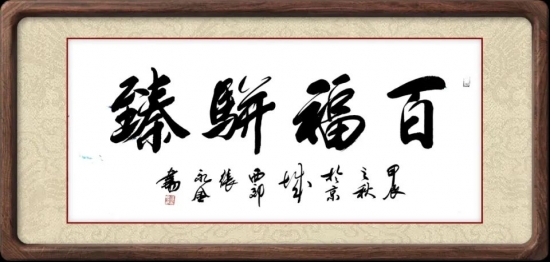 百福駢臻
甲辰之秋於京城西郊張永書